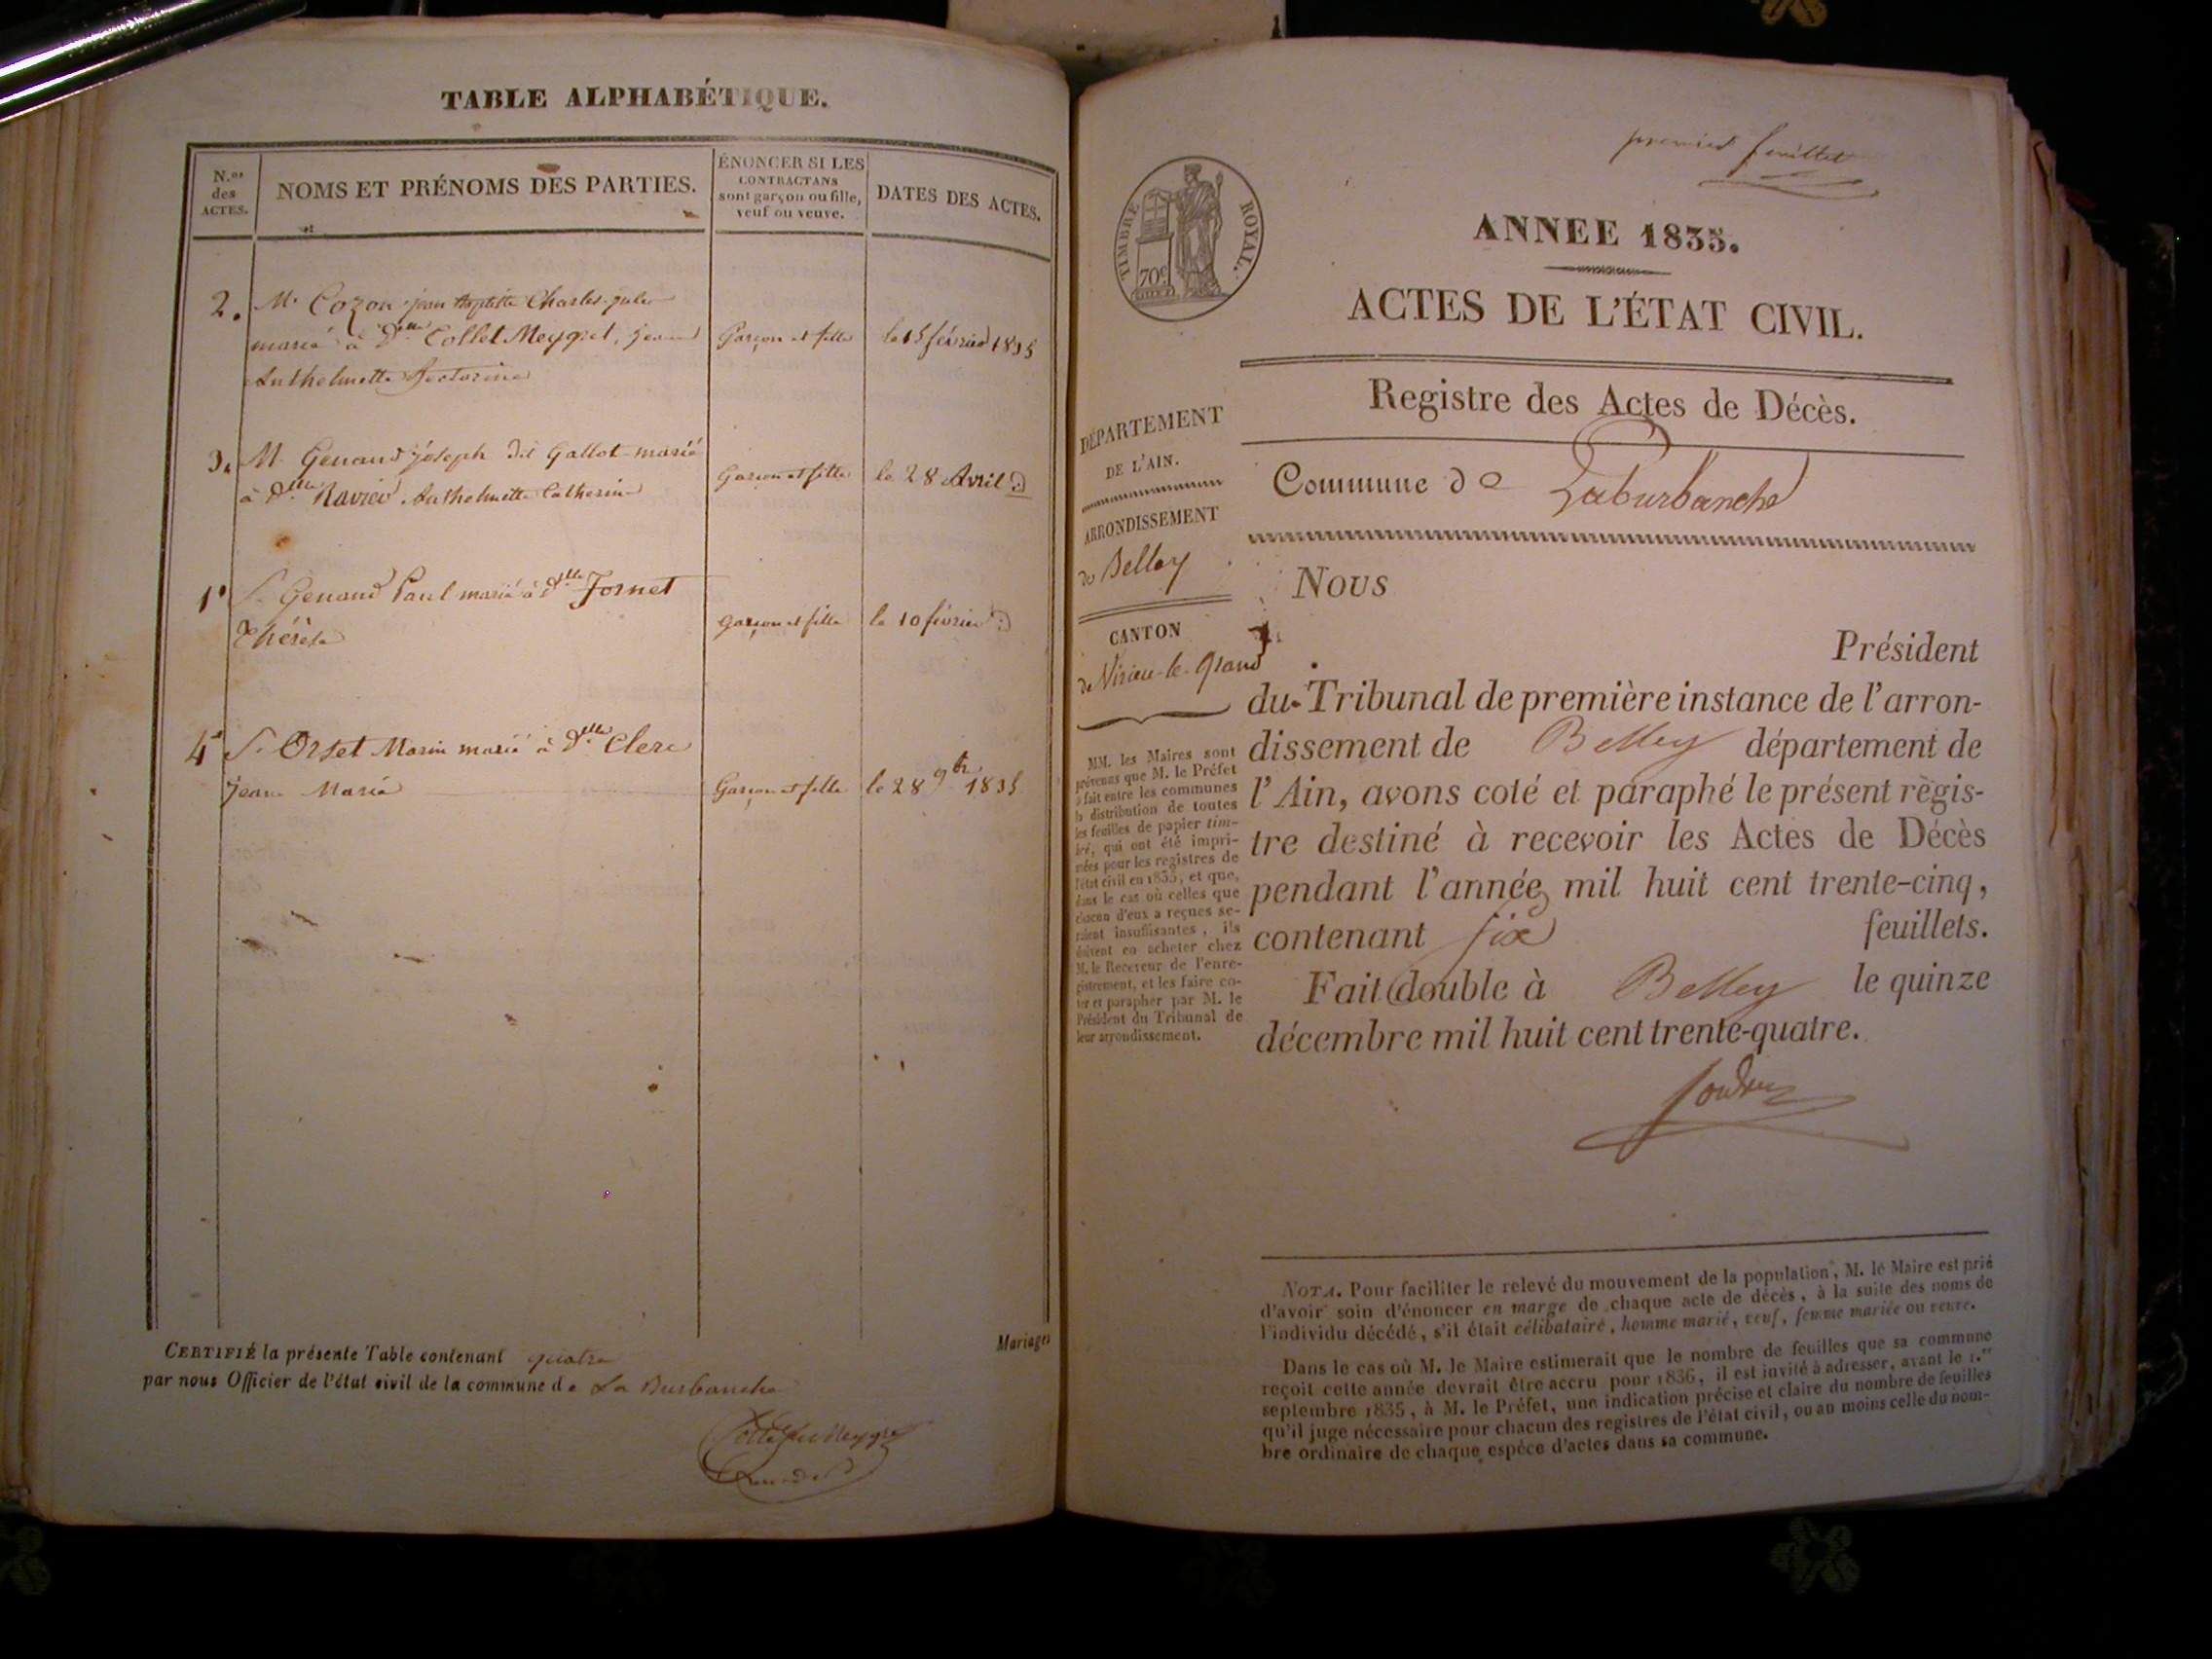 TABLE ALPHABÉTIQUE.
N.os des ACTES.
NOMS ET PRÉNOMS DES PARTIES.
ÉNONCER SI LES
CONTRACTANS
sont garçon ou fille,
veuf ou veuve.
DATES DES ACTES.
et
2. Mr Cozon jean Baptiste Charles jules
marié à Dlle Collet Meygret, jeanne Garçon et fille le 15 février 1835
Anthelmette Victorine
3. M. Genaud joseph dit Gallot marié
à Dlle Ravier Anthelmette Catherine Garçon et fille le 28 Avril
1 S. Genaud Paul marié à Dlle Jornet
Thérèse Garçon et fille le 10 février
4 S. Orset Marin marié à Dlle Clerc
jeane Marie Garçon et fille le 28 9bre 1835
Mariages
CERTIFIÉ la présente Table contenant quatre
par nous Officier de l'état civil de la commune de La Burbanche
Collet Meygret
premier feuillet
TIMBRE ROYAL.
70c
ANNEE 1835.
ACTES DE L'ÉTAT CIVIL.
Registre des Actes de Décès.
Commune de Laburbanche
DÉPARTEMENT
DE L'AIN.
ARRONDISSEMENT
de Belley
CANTON
de Virieu-le-Grand
MM. les Maires sont
prévenus que M. le Préfet
a fait entre les communes
la distribution de toutes
les feuilles de papier tim-
bré, qui ont été impri-
mées pour les registres de
l'état civil en 1835, et que,
dans le cas où celles que
chacun d'eux a reçues se-
raient insuffisantes, ils
doivent en acheter chez
M. le Receveur de l'enre-
gistrement, et les faire co-
ter et parapher par M. le
Président du Tribunal de
leur arrondissement.
Nous
Président
du Tribunal de première instance de l'arron-
dissement de Belley département de
l'Ain, avons coté et paraphé le présent régis-
tre destiné à recevoir les Actes de Décès
pendant l'année mil huit cent trente-cinq,
contenant six feuillets.
Fait double à Belley le quinze
décembre mil huit cent trente-quatre.
NOTA. Pour faciliter le relevé du mouvement de la population, M. le Maire est prié
d'avoir soin d'énoncer en marge de chaque acte de décès, à la suite des noms de
l'individu décédé, s'il était célibataire, homme marié, veuf, femme mariée ou veuve.
Dans le cas où M. le Maire estimerait que le nombre de feuilles que sa commune
reçoit cette année devrait être accru pour 1836, il est invité à adresser, avant le 1.er
septembre 1835, à M. le Préfet, une indication précise et claire du nombre de feuilles
qu'il juge nécessaire pour chacun des registres de l'état civil, ou au moins celle du nom-
bre ordinaire de chaque espèce d'actes dans sa commune.